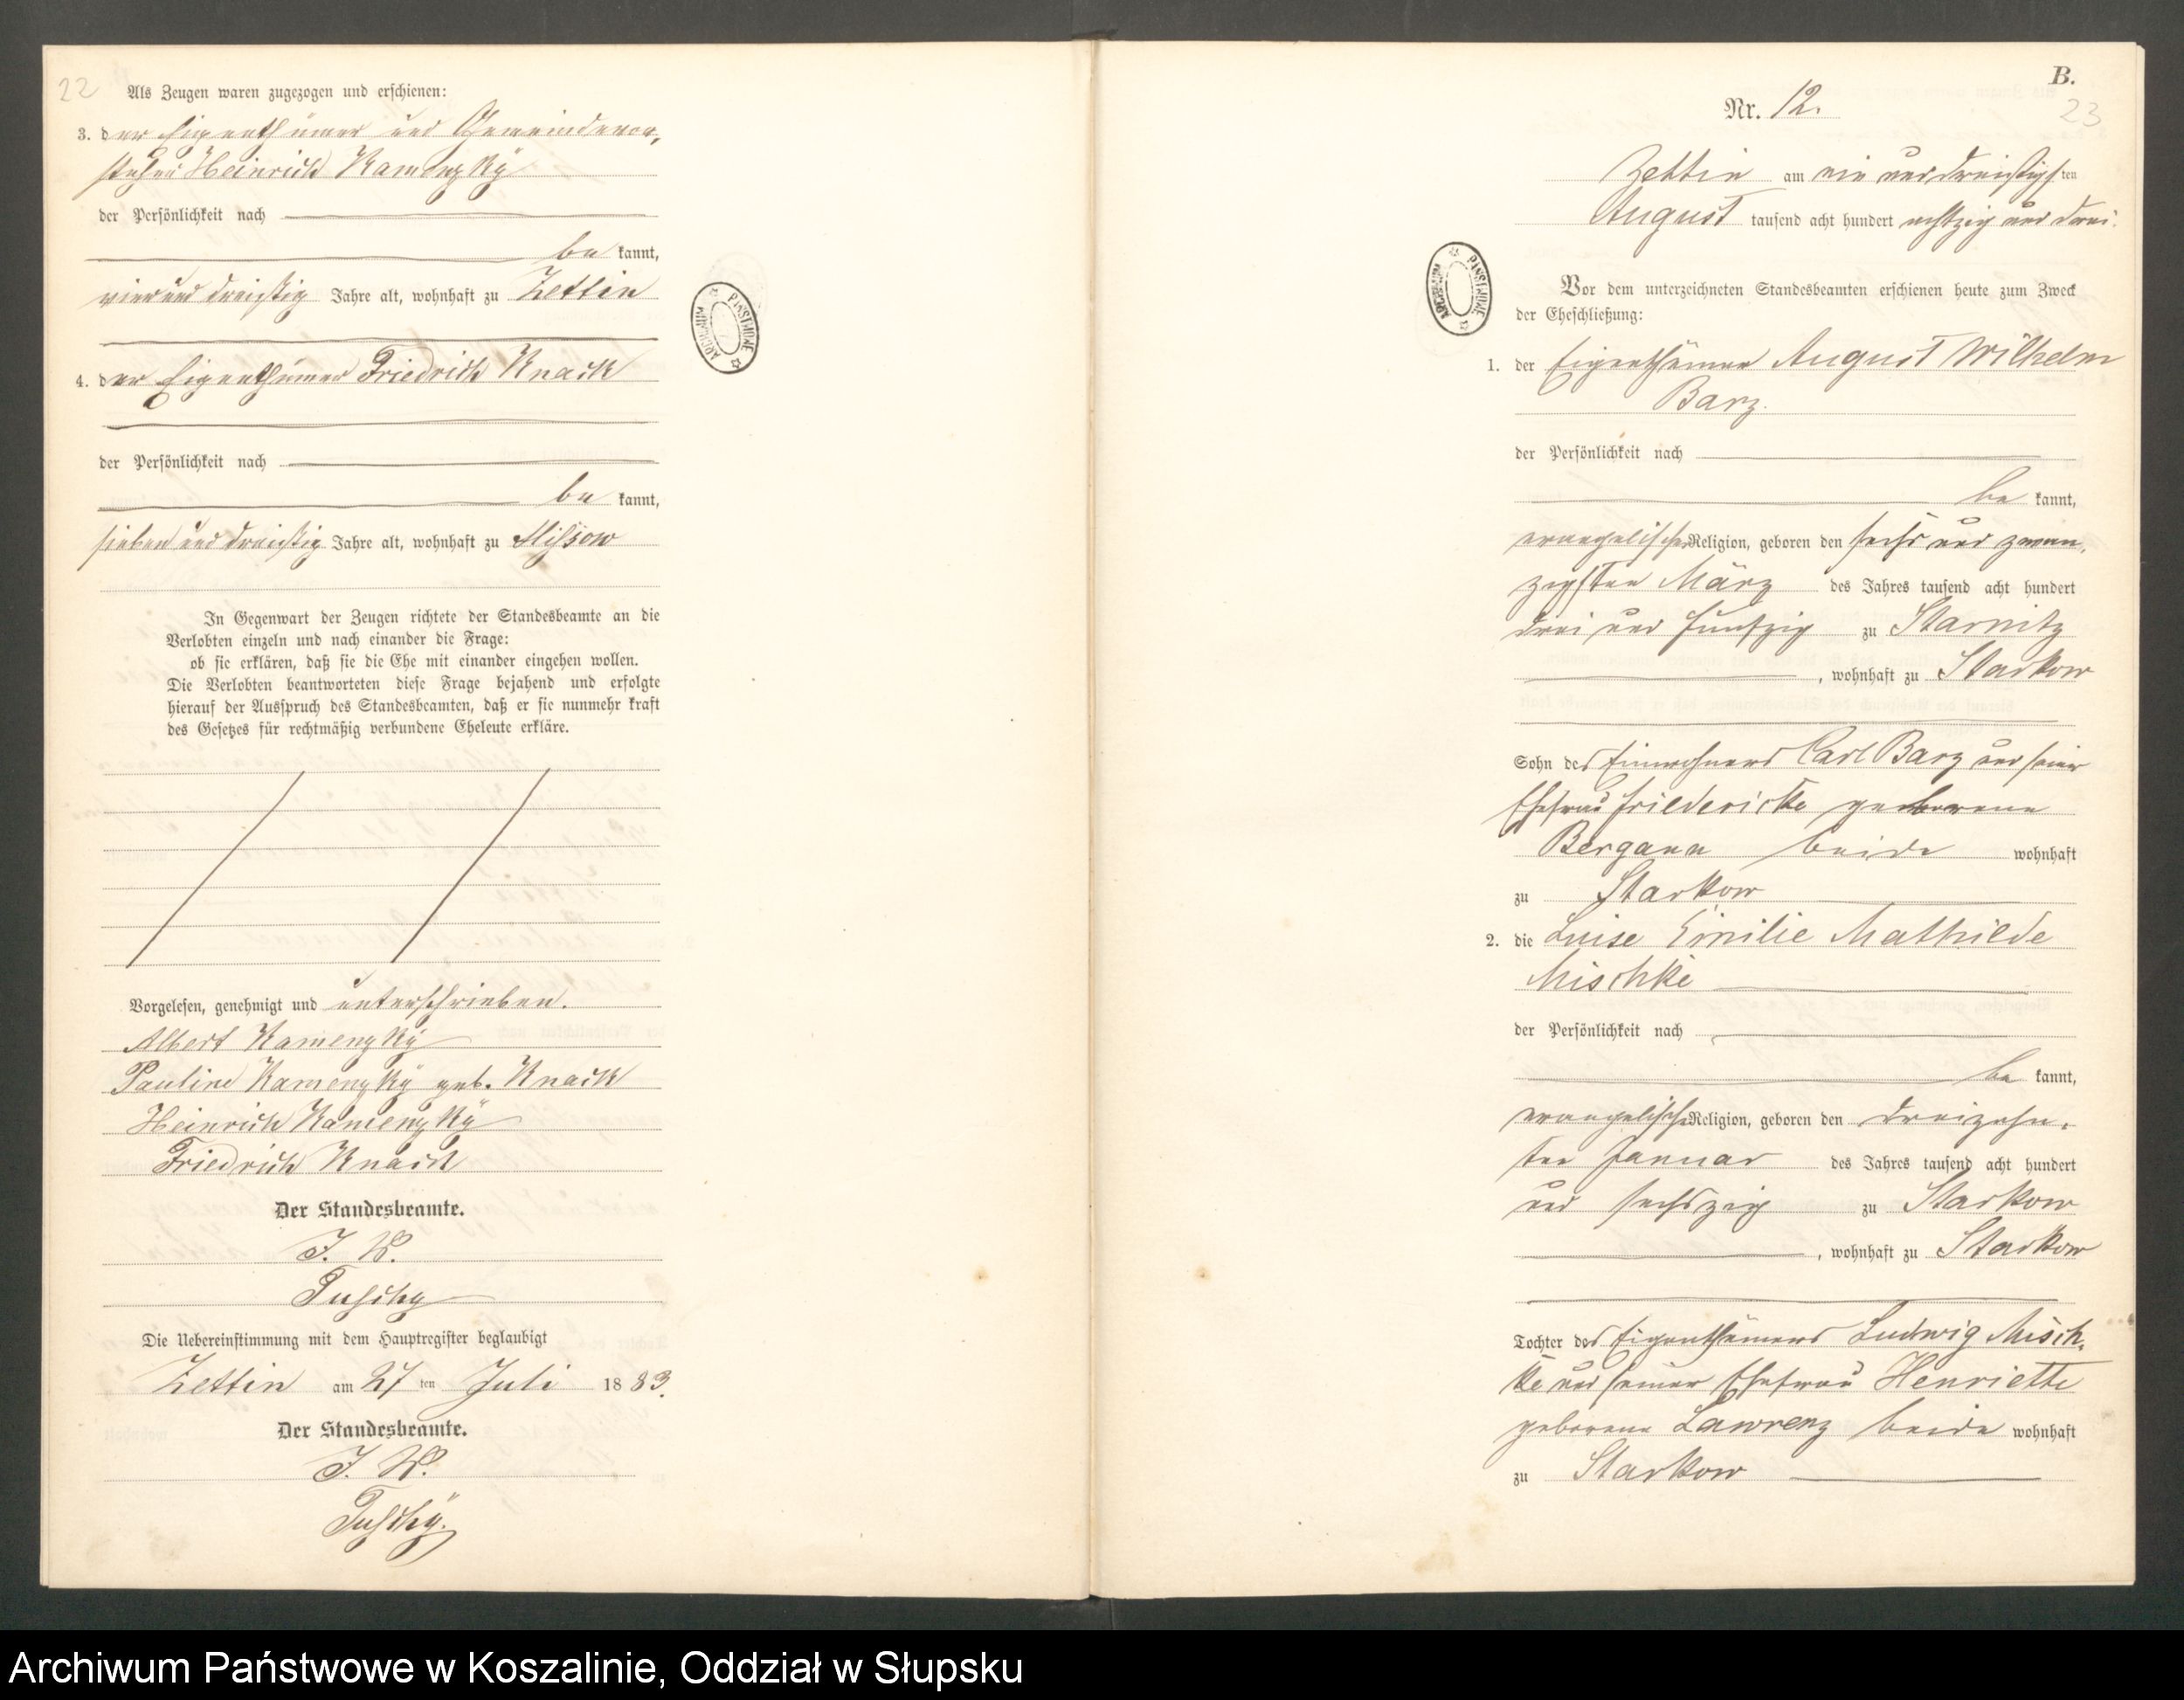 22
Als Zeugen waren zugezogen und erschienen:
3. der Eigenthümer und Gemeindevor-
steher Heinrich Kamenzky
der Persönlichkeit nach
be kannt,
vier und dreißig Jahre alt, wohnhaft zu Zettin
4. der Eigenthümer Friedrich Knack
der Persönlichkeit nach
be kannt,
sieben und dreißig Jahre alt, wohnhaft zu Missow
In Gegenwart der Zeugen richtete der Standesbeamte an die
Verlobten einzeln und nach einander die Frage:
ob sie erklären, daß sie die Ehe mit einander eingehen wollen.
Die Verlobten beantworteten diese Frage bejahend und erfolgte
hierauf der Ausspruch des Standesbeamten, daß er sie nunmehr kraft
des Gesetzes für rechtmäßig verbundene Eheleute erkläre.
Vorgelesen, genehmigt und unterschrieben.
Albert Kamenzky
Pauline Kamenzky geb. Knack
Heinrich Kamenzky
Friedrich Knack
Der Standesbeamte.
J. V.
Die Uebereinstimmung mit dem Hauptregister beglaubigt
Zettin am 27 ten Juli 1883.
Der Standesbeamte.
J. V.
ARCHIWUM PAŃSTWOWE
B.
23
Nr. 12.
Zettin am ein und dreißigsten
August tausend acht hundert achtzig und drei.
ARCHIWUM PAŃSTWOWE
Vor dem unterzeichneten Standesbeamten erschienen heute zum Zweck
der Eheschließung:
1. der Eigenthümer August Wilhelm
Barz.
der Persönlichkeit nach
be kannt,
evangelischer Religion, geboren den sechs und zwan-
zigsten März des Jahres tausend acht hundert
drei und fünfzig zu Starnitz
, wohnhaft zu Starkow
Sohn des Einwohners Carl Barz und seiner
Ehefrau Friedericke geborene
Bergann beide wohnhaft
zu Starkow
2. die Luise Emilie Mathilde
Mischke
der Persönlichkeit nach
be kannt,
evangelischer Religion, geboren den dreizehn-
ten Januar des Jahres tausend acht hundert
und sechszig zu Starkow
, wohnhaft zu Starkow
Tochter des Eigenthümers Ludwig Misch-
ke und seiner Ehefrau Henriette
geborene Lawrenz beide wohnhaft
zu Starkow
Archiwum Państwowe w Koszalinie, Oddział w Słupsku